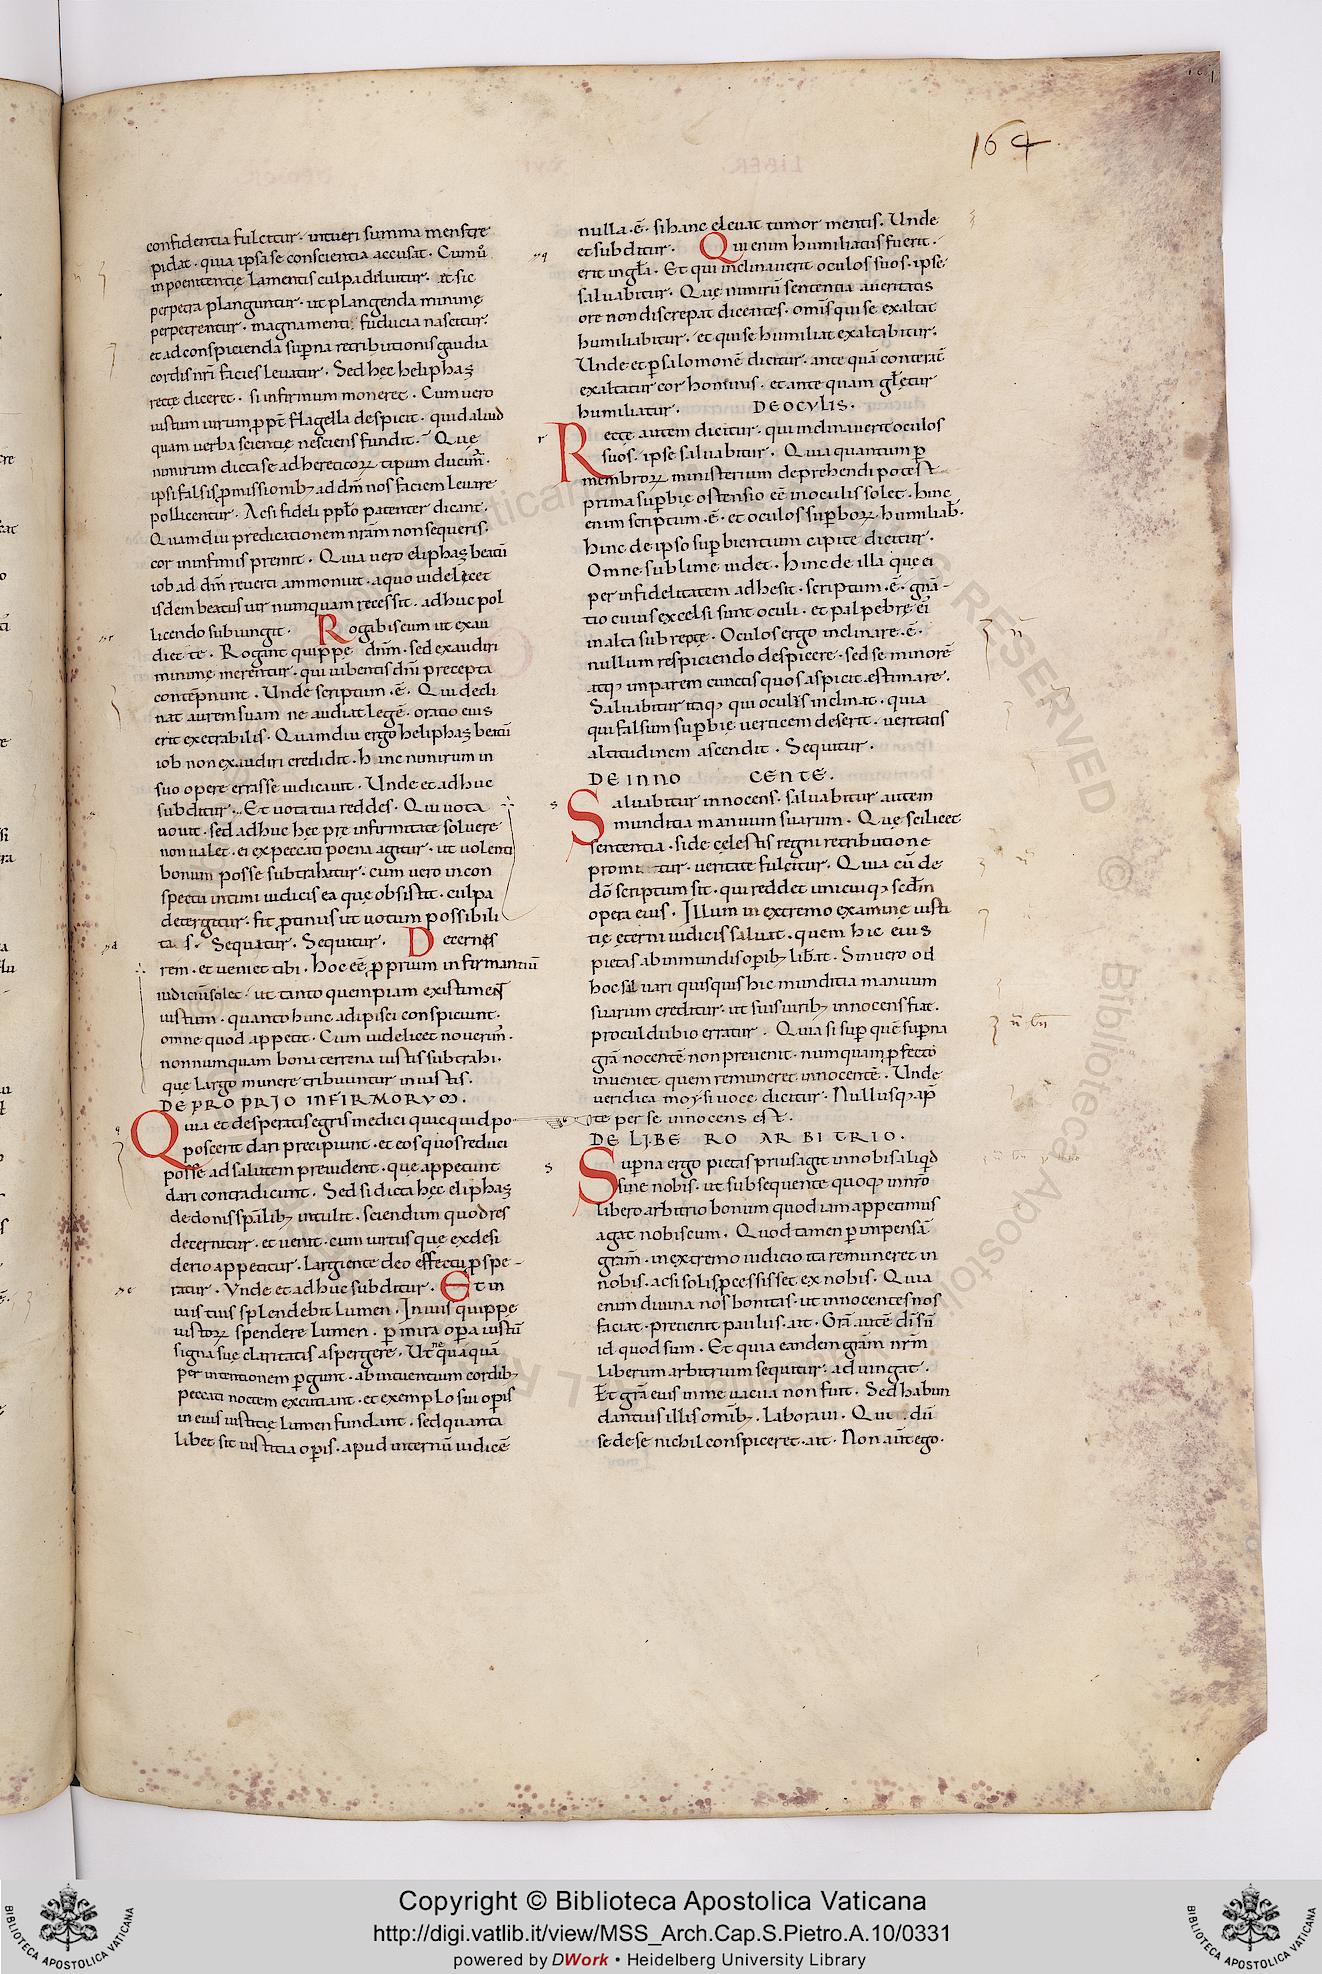 164
confidentia fulcitur · intueri summa mens tre
pidat · quia ipsa se conscientia accusat · Cum ů
inpoenitentię lamentis culpa diluitur · et sic
perpetra planguntur · ut plangenda minimę
perpetrentur · magna menti fiducia nascitur ·
et ad conspicienda sup̄na retributionis gaudia
cordis nr̄i facies levatur · Sed hęc heliphaz
recte diceret · si infirmum moneret · Cum vero
iustum virum ꝓpt̄ flagella despicit · quid aliud
quam verba scientię nesciens fundit · Quę
nimirum dicta se ad hereticoꝝ tipum ducim̄ ·
ipsi falsis ꝓmissionibꝫ ad dm̄ nos faciem levare
pollicentur · Ac si fideli pplo patenter dicant ·
Quamdiu predicationem nram̄ non sequeris ·
cor in infimis premit · Quia vero eliphaz beatū
iob ad dm̄ reverti ammonuit · a quo videlicet
isdem beatus vir numquam recessit · adhuc pol
licendo subiungit · Rogabis eum ut exau
diet te · Rogant quippe dnm̄ · sed exaudiri
minimę merentur · qui iubentis dnī precepta
contēpnunt · Unde scriptum · ē · Qui decli
nat aurem suam ne audiat legē · oratio eius
erit execrabilis · Quamdiu ergo heliphaz beatū
iob non exaudiri credidit · hunc nimirum in
suo opere errasse iudicavit · Unde et adhuc
subditur · Et vota tua reddes · Qui vota
vovit · sed adhuc hęc prę infirmitate solvere
non valet · ei ex peccati poena agitur · ut volenti
bonum posse subtrahatur · cum vero in con
spectu intimi iudicis ea que obsistit · culpa
detergitur · fit ꝓtinus ut votum possibili
ta s · Sequatur · Sequitur · Decernes
rem · et veniet tibi · hoc eē ꝓprium infirmantiū
iudiciū solet · ut tanto quempiam existiment
iustum · quanto hunc adipisci conspiciunt ·
omne quod appetit · Cum videlicet noverim̄ ·
nonnumquam bona terrena iustis subtrahi ·
quę largo munere tribuuntur iniustis ·
DE PROPRIO INFIRMORUM ·
Quia et desperatis egris medici quicquid po
poscerit dari precipiunt · et eos quos reduci
posse ad salutem prevident · que appetunt
dari contradicunt · Sed si dicta hęc eliphaz
de donis spālibꝫ intulit · sciendum quod res
decernitur · et venit · cum virtus que ex desi
derio appetitur · largiente deo effectu ꝓspe
ratur · Unde et adhuc subditur · Et in
viis tuis splendebit lumen · In viis quippe
iustoꝝ spendere lumen · ꝑ mira oꝑa iustū
signa suę claritatis aspergere · Ut nequaquā
per intentionem ꝑgunt · ab intuentium cordibꝫ
peccati noctem excutiant · et exemplo sui oꝑis
in eius iustitię lumen fundant · sed quanta
libet sit iustitia oꝑis · apud internū iudicē
nulla · ē · si hanc elevat tumor mentis · Unde
et subditur · Qui enim humiliatus fuerit ·
erit in gl̄a · Et qui inclinaverit oculos suos · ipse
salvabitur · Quę nimirū sententia a veritatis
ore non discrepat dicentes · omīs qui se exaltat
humiliabitur · et qui se humiliat exaltabitur ·
Unde et ꝑ salomonē dicitur · ante quā conterat̄
exaltatur cor hominis · et ante quam gl̄etur
humiliatur · DE OCULIS ·
Recte autem dicitur · qui inclinaverit oculos
suos · ipse salvabitur · Quia quantum ꝑ
membroꝝ ministerium deprehendi potest
prima suꝑbię ostensio eē in oculis solet · hinc
enim scriptum · ē · et oculos suꝑboꝝ · humiliab̄ ·
hinc de ipso suꝑbientium capite dicitur ·
Omne sublime videt · hinc de illa que ei
per infidelitatem adhesit · scriptum · ē · gn̄a
tio cuius excelsi sunt oculi · et palpebrę ei'
in alta subrepte · Oculos ergo inclinare · ē ·
nullum respiciendo despicere · sed se minorē
atqꝫ imparem cunctis quos aspicit · estimare ·
Salvabitur itaqꝫ qui oculis inclinat · quia
qui falsum suꝑbię verticem deserit · veritatis
altitudinem ascendit · Sequitur ·
DE INNO CENTE ·
Salvabitur innocens · salvabitur autem
munditia manuum suarum · Quę scilicet
sententia · si de cęlestis regni retributione
promi tur · veritate fulcitur · Quia cū de
dō scriptum sit · qui reddet unicuiqꝫ scdm̄
opera eius · Illum in extremo examine iusti
tię ęterni iudicis salvat · quem hic eius
pietas ab inmundis oꝑibꝫ libat̄ · Sin vero o id
hoc salvari quisquis hic munditia manuum
suarum creditur · ut suis viribꝫ innocens fiat ·
procul dubio erratur · Quia si suꝑ quē suꝑna
grā nocentē non prevenit · numquam ꝑfecto
inveniet quem remuneret innocentē · Unde
veridica moysi voce dicitur · Nullusqꝫ ap̄
te per se innocens est ·
DE LIBE RO AR BI TRIO ·
Suꝑna ergo pietas prius agit in nobis aliqid
sine nobis · ut subsequente quoqꝫ in nr̄o
libero arbitrio bonum quod iam appetimus
agat nobiscum · Quod tamen ꝑ impensā
gram̄ · in extremo iudicio ita remuneret in
nobis · ac si soli ꝓcessisset ex nobis · Quia
enim divina nos bonitas · ut innocentes nos
faciat · prevenit paulus · ait · Grā autē dī sū
id quod sum · Et quia eandem gram̄ nrm̄
liberum arbitrium sequitur · adiungat ·
Et grā eius in me vacua non fuit · Sed habun
dantius illis omībꝫ · laboravi · Qui dū
se de se nichil conspiceret · ait · Non aūt ego ·
Copyright © Biblioteca Apostolica Vaticana
http://digi.vatlib.it/view/MSS_Arch.Cap.S.Pietro.A.10/0331
powered by DWork • Heidelberg University Library
BIBLIOTECA APOSTOLICA VATICANA
BIBLIOTECA APOSTOLICA VATICANA